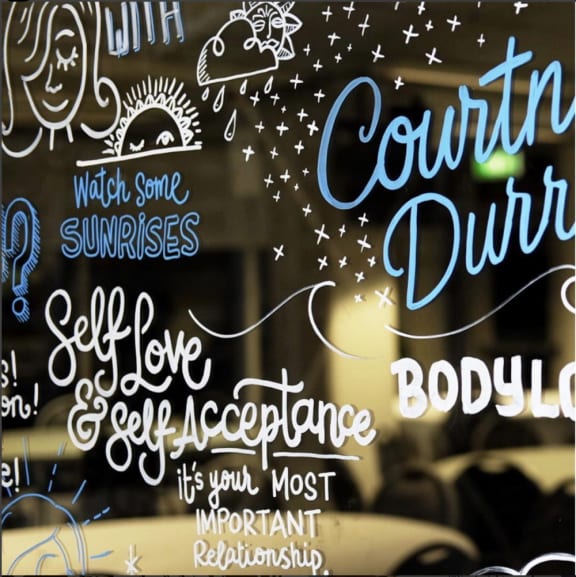 WITH
Courtn
Durr
Watch Some
SUNRISES
?
s!
on!
e!
Self Love
& Self Acceptance
it's your MOST
IMPORTANT
Relationship.
BODYLO